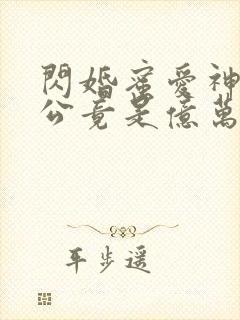 閃婚蜜愛神
公竟是億萬
平步遥